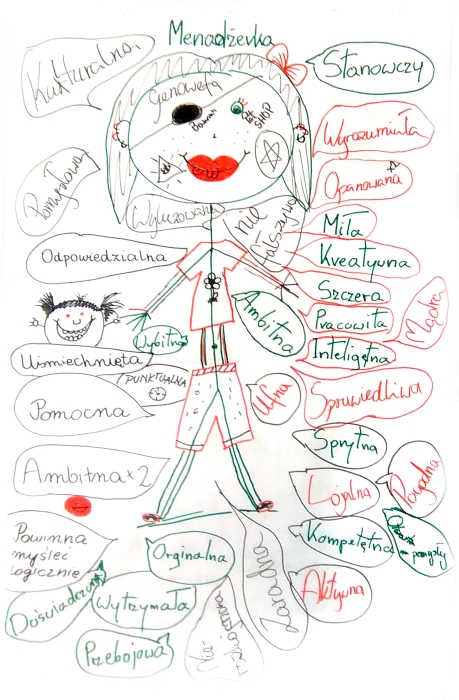 Menadżerka
Kulturalna,
Stanowczy
Genowefa
SHOP
Wyrozumiała
Pomysłowa
Opanowana
Wyluzowana
nie
fałszywa
Miła
Odpowiedzialna
Kreatywna
Szczera
Ambitna
Pracowita
Mądra
Wybitna
Inteligętna
Uśmiechnięta
PUNKTUALNA
Ufna
Sprawiedliwa
Pomocna
Sprytna
Ambitna x 2
Lojalna
Powinna
myśleć
logicznie
Orginalna
Kompetętna
na pomysły
Zaradna
Doświadczona
Wytrzymała
Aktywna
Przebojowa
Nie-